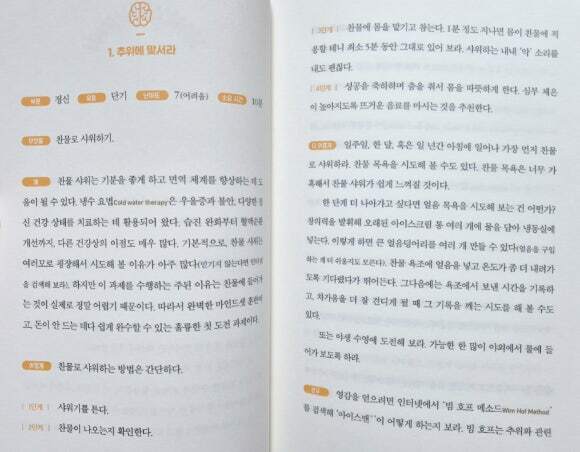 1. 추위에 맞서라
부문 정신 유형 단기 난이도 7(어려움) 소요 시간 10분
무엇을 찬물로 샤워하기.
왜 찬물 샤워는 기분을 좋게 하고 면역 체계를 향상하는 데 도
움이 될 수 있다. 냉수 요법Cold water therapy은 우울증과 불안, 다양한 정
신 건강 상태를 치료하는 데 활용되어 왔다. 습진 완화부터 혈액순환
개선까지, 다른 건강상의 이점도 매우 많다. 기본적으로, 찬물 샤워는
여러모로 굉장해서 시도해 볼 이유가 아주 많다(믿기지 않는다면 인터넷
을 검색해 보라). 하지만 이 과제를 수행하는 주된 이유는 찬물에 들어가
는 것이 실제로 정말 어렵기 때문이다. 따라서 완벽한 마인드셋 훈련이
고, 돈이 안 드는 데다 쉽게 완수할 수 있는 훌륭한 첫 도전 과제이다.
어떻게 찬물로 샤워하는 방법은 간단하다.
[1단계] 샤워기를 튼다.
[2단계] 찬물이 나오는지 확인한다.
[3단계] 찬물에 몸을 맡기고 참는다. 1분 정도 지나면 몸이 찬물에 적
응할 테니 최소 5분 동안 그대로 있어 보라. 샤워하는 내내 ‘악’ 소리를
내도 괜찮다.
[4단계] 성공을 축하하며 춤을 춰서 몸을 따뜻하게 한다. 심부 체온
이 높아지도록 뜨거운 음료를 마시는 것을 추천한다.
더 어렵게 일주일, 한 달, 혹은 일 년간 아침에 일어나 가장 먼저 찬물
로 샤워하라. 찬물 목욕을 시도해 볼 수도 있다. 찬물 목욕은 너무 가
혹해서 찬물 샤워가 쉽게 느껴질 것이다.
한 단계 더 나아가고 싶다면 얼음 목욕을 시도해 보는 건 어떤가?
창의력을 발휘해 오래된 아이스크림 통 여러 개에 물을 담아 냉동실에
넣는다. 이렇게 하면 큰 얼음덩어리를 여러 개 만들 수 있다(얼음을 구입
하는 게 더 쉬울지도 모른다). 찬물 욕조에 얼음을 넣고 온도가 좀 더 내려가
도록 기다렸다가 뛰어든다. 그다음에는 욕조에서 보낸 시간을 기록하
고, 차가움을 더 잘 견디게 될 때 그 기록을 깨는 시도를 해 볼 수도
있다.
또는 야생 수영에 도전해 보라. 가능한 한 많이 야외에서 물에 들
어가 보도록 하라.
참고 영감을 얻으려면 인터넷에서 ‘빔 호프 메소드Wim Hof Method’
를 검색해 ‘아이스맨’이 어떻게 하는지 보라. 빔 호프는 추위와 관련